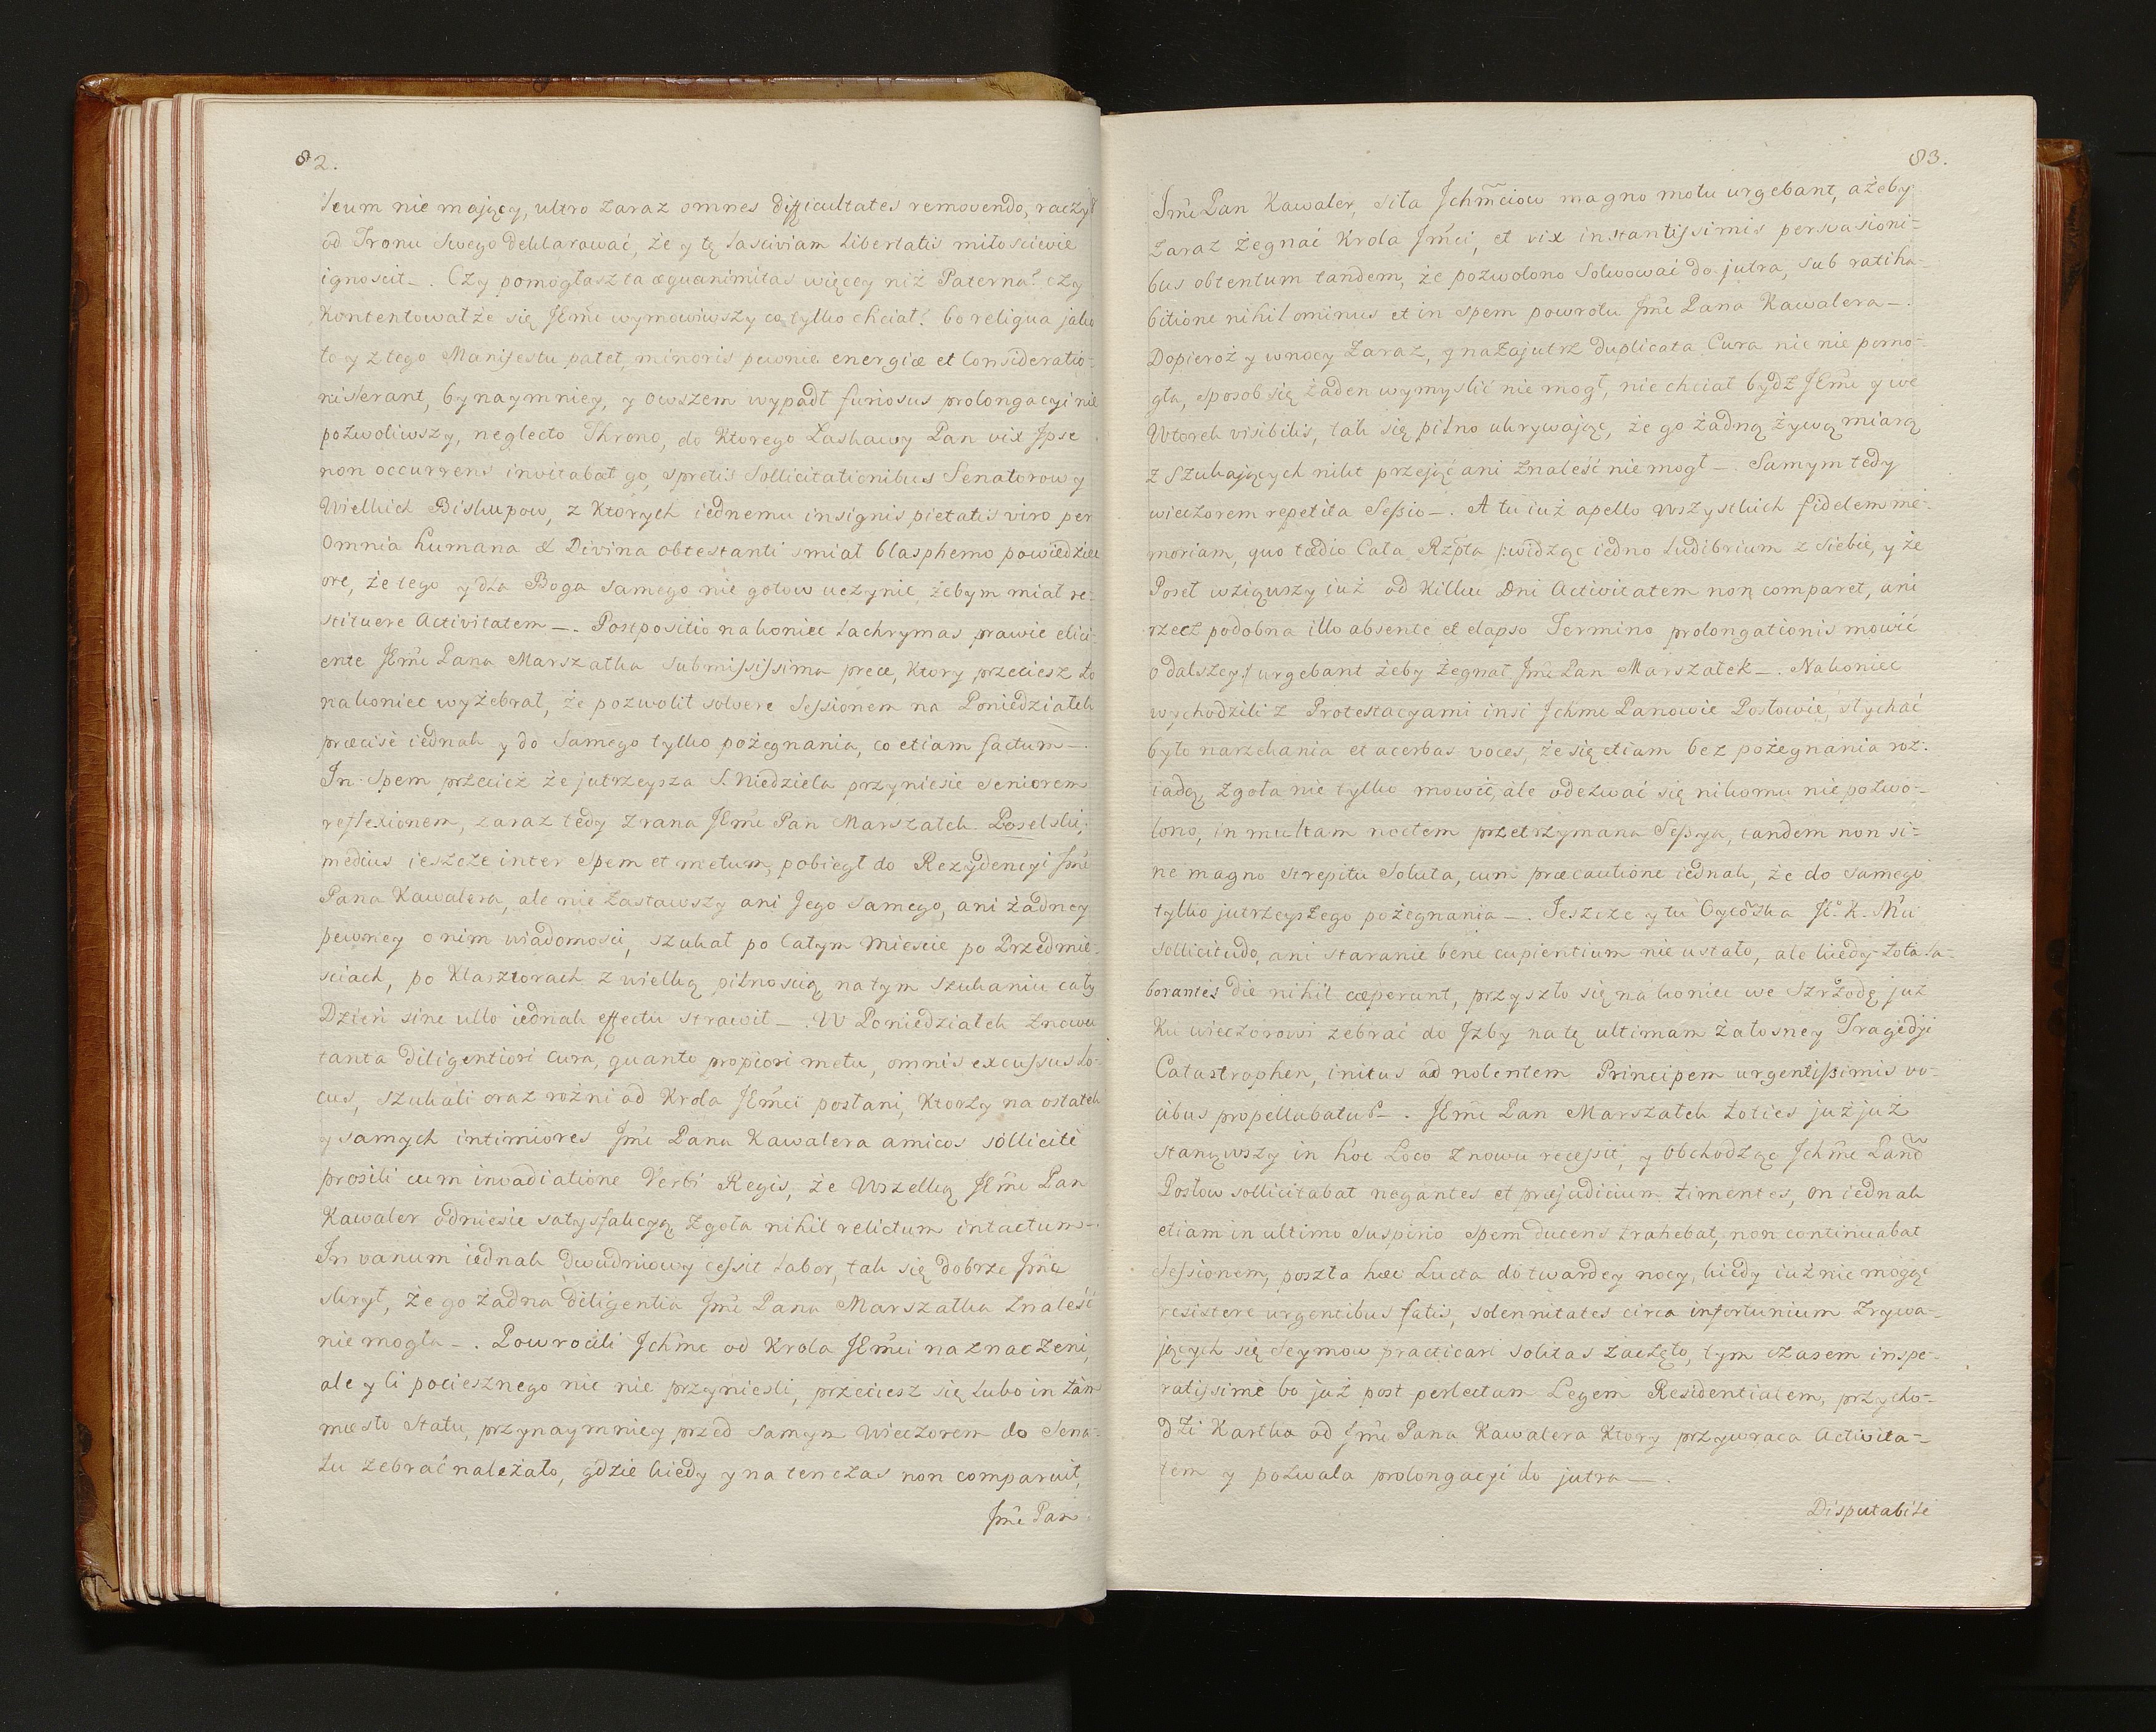 82.
leum nie maiący, ultro zaraz omnes difficultates removendo, raczył
od Tronu Swego deklarować, że y tę lasciviam libertatis miłościwie
ignoscit_. Czy pomogłasz ta æquanimitas więcey niż Paterna? czy
Kontentowałże się JEmć wymowiwszy co tylko chciał? bo reliqua jako
to y z tego Manifestu patet, minoris pewnie energiæ et Consideratio-
nis erant, bynaymniey, y owszem wypadł furiosus prolongacyi nie
pozwoliwszy, neglecto Throno, do Ktorego Łaskawy Pan vix Ipse
non occurrens invitabat go, spretis sollicitationibus Senatorow y
Wielkich Biskupow, z Ktorych iednemu insignis pietatis viro per
Omnia humana & Divina obtestanti smiał blasphemo powiedziec
ore, że tego y dla Boga samego nie gotow uczynic, żebym miał re-
stituere Activitatem_. Postpositio nakoniec lachrymas prawie elici-
ente JEmć Pana Marszałka submississima prece, Ktory przeciesz to
nakoniec wyżebrał, że pozwolił solvere Sessionem na Poniedziałek
præcisè iednak y do samego tylko pożegnania, co etiam factum_.
In spem przecież że jutrzeysza S. Niedziela przyniesie seniorem
reflexionem, zaraz tedy z rana JEmć Pan Marszałek Poselski,
medius ieszcze inter spem et metum, pobiegł do Rezydencyi Jmć
Pana Kawalera, ale nie zastawszy ani Jego samego, ani żadney
pewney o nim wiadomosci, szukał po całym Miescie po Przedmie-
sciach, po Klasztorach z wielką pilnoscią na tym szukaniu cały
Dzień sine ullo iednak effectu strawił_. W Poniedziałek znowu
tanta diligentiori cura, quanto propiori metu, omnis excussus lo-
cus, szukali oraz rożni od Krola JEmci posłani, Ktorzy na ostatek
y samych intimiores Jmć Pana Kawalera amicos sollicitè
prosili cum invadiatione Verbi Regis, że Wszelką JEmć Pan
Kawaler odniesie satysfakcyą zgoła nihil relictum intactum_.
In vanum iednak dwudniowy cessit labor, tak się dobrze Jmć
skrył, że go żadna diligentia Jmć Pana Marszałka znaleść
nie mogła_. Powrocili Ichmć od Krola JEmci naznaczeni,
ale y ci pociesznego nic nie przyniesli, przeciesz się lubo in tam
mæsto statu, przynaymniey przed samym wieczorem do Sena-
tu zebrać należało, gdzie kiedy y na ten czas non comparuit,
Jmć Pan
83.
Jmć Pan Kawaler, siła Ichmciow magno motu urgebant, ażeby
zaraz żegnać Krola Jmci, et vix instantissimis persvasioni-
bus obtentum tandem, że pozwolono Solwować do jutra, sub ratiha-
bitione nihilominus et in spem powrotu Jmć Pana Kawalera_.
Dopieroż y w nocy zaraz, y nazajutrz duplicata Cura nic nie pomo-
gła, sposob się żaden wymyslić nie mogł, nie chciał bydź JEmć y we
Wtorek visibilis, tak się pilno ukrywając, że go żadną żywą miarą
z szukaiących nikt przejąć ani znaleść nie mogł_. Samym tedy
wieczorem repetita Sessio_. A tu iuż apello wszystkich fidelem me-
moriam, quo tædio Cała Rzpta /:widząc iedno ludibrium z siebie, y że
Poseł wziąwszy iuż od kilku Dni Activitatem non comparet, ani
rzecz podobna illo absente et elapso Termino prolongationis mowić
o dalszey:/ urgebant żeby żegnał Jmć Pan Marszałek_. Nakoniec
wychodzili z Protestacyami insi Ichmć Panowie Posłowie, słychać
było narzekania et acerbas voces, że się etiam bez pożegnania roz-
iadą, zgoła nie tylko mowić, ale odezwać się nikomu nie pozwo-
lono, in multam noctem przetrzymana Sessya, tandem non si-
ne magno strepitu Soluta, cum præcautione iednak, że do samego
tylko jutrzeyszego pożegnania_. Jeszcze y tu Oycowska JK. Mci
sollicitudo, ani staranie bene cupientium nie ustało, ale kiedy tota la-
borantes die nihil cæperunt, przyszło się nakoniec we Szrzodę już
ku wieczorowi zebrać do Izby na tę ultimam żałosney Tragedyi
Catastrophen, initus ad nolentem Principem urgentissimis vo-
cibus propellubatur_. JEmć Pan Marszałek toties już już
stanąwszy in hoc Loco znowu recessit, y obchodząc Ichmć Panow
Posłow sollicitabat negantes et præjudicium timentes, on iednak
etiam in ultimo suspirio spem ducens trahebat, non continuabat
Sessionem, poszła hæc Lucta do twardey nocy, kiedy iuż nie mogąc
resistere urgentibus fatis, solennitates circa infortunium zrywa-
jących się Seymow practicari solitas zaczęto, tym czasem inspe-
ratissimè bo już post perlectam Legem Residentialem, przycho-
dzi Kartka od Jmć Pana Kawalera Ktory przywraca Activita-
tem y pozwala prolongacyi do jutra_.
Disputabile